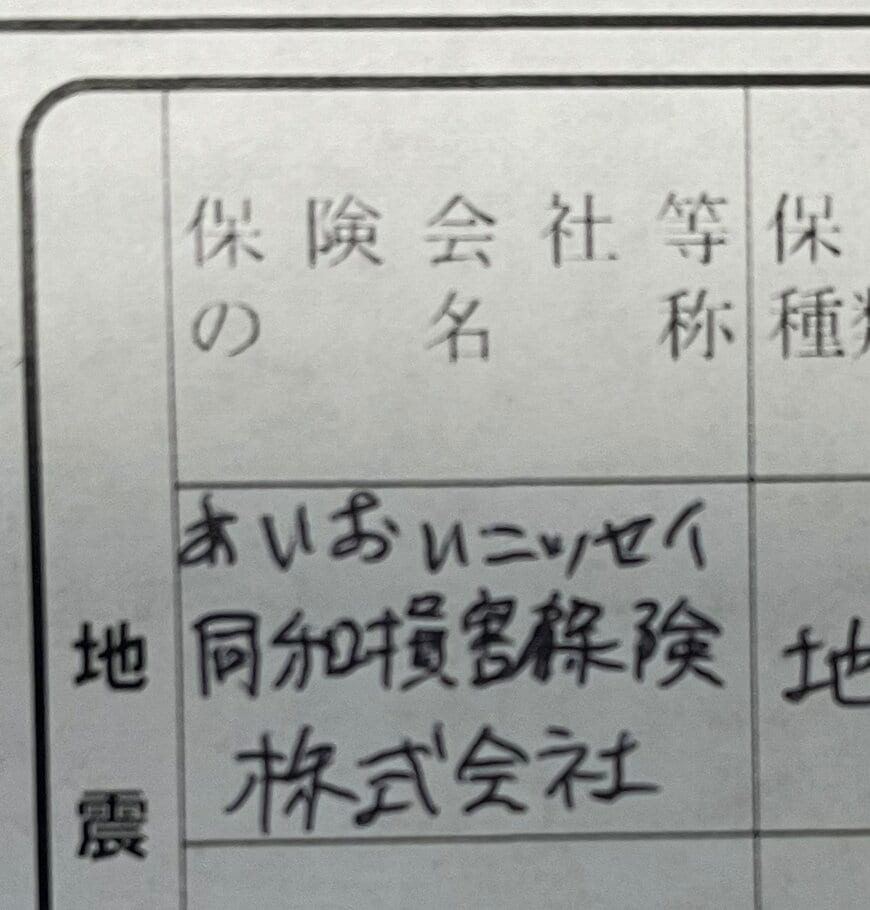 保険会社等 保
の名称 種類
あいおいニッセイ
同和損害保険 地
株式会社
地
震